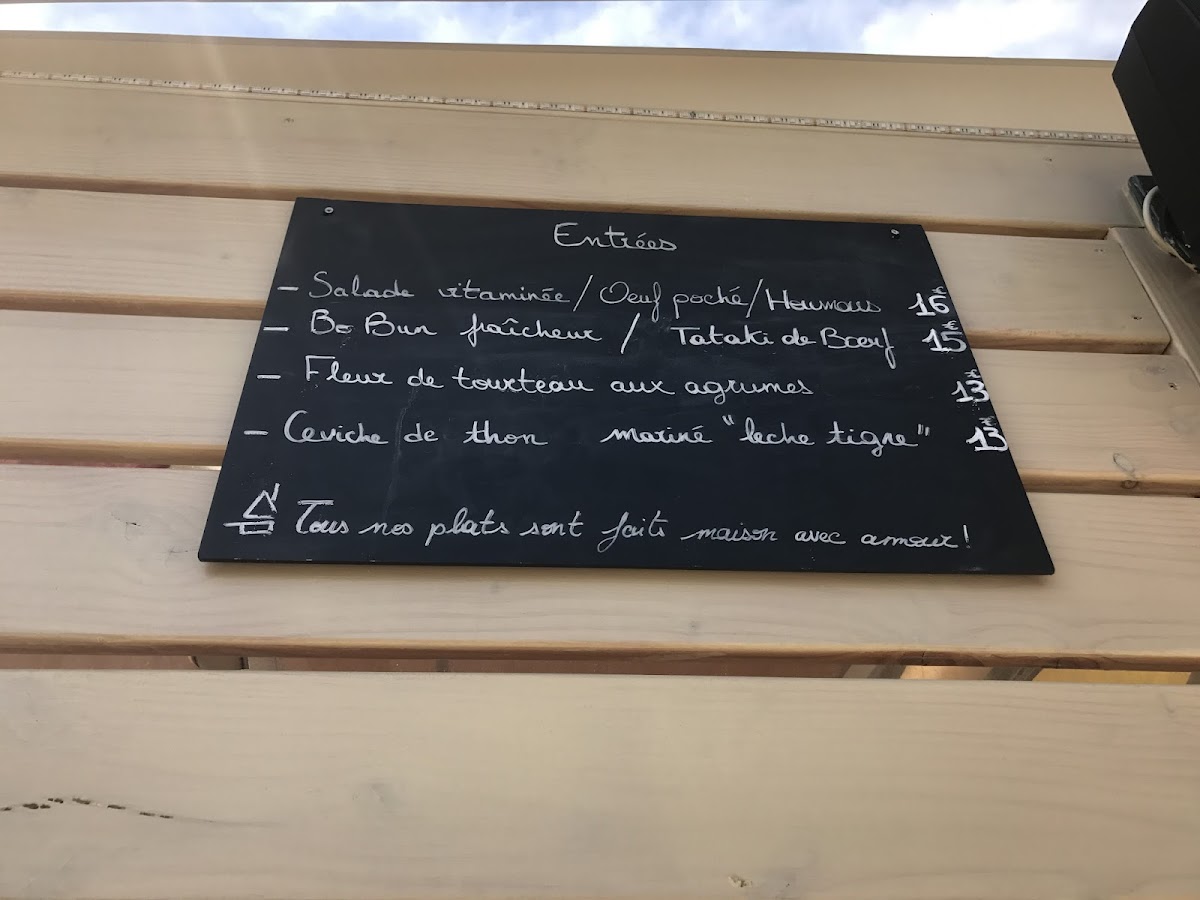 Entrées
- Salade vitaminée / Oeuf poché / Houmous 16€
- Bo Bun fraîcheur / Tataki de Bœuf 15€
- Fleur de tourteau aux agrumes 13€
- Ceviche de thon mariné "leche tigre" 13€
Tous nos plats sont faits maison avec amour!